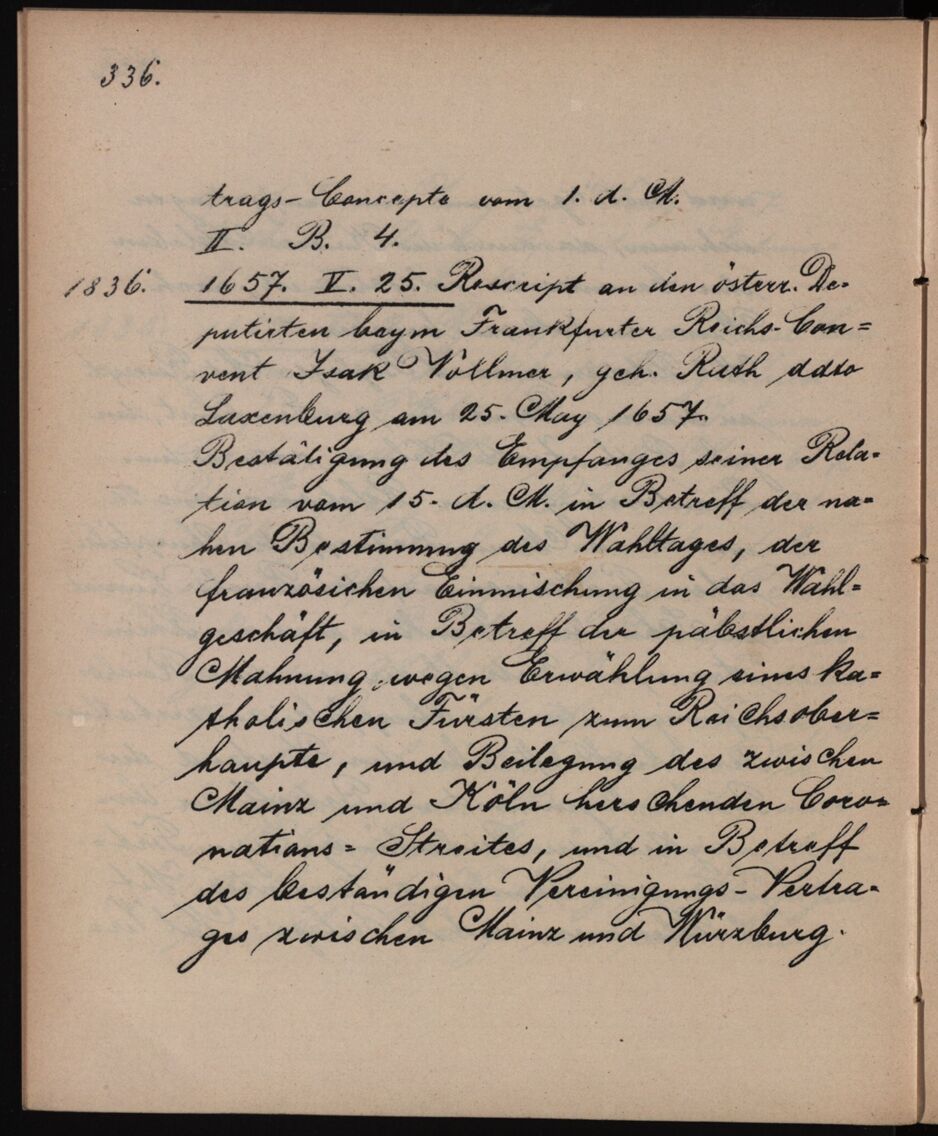 336.
trags-Concepte vom 1. d. M.
II. B. 4.
1836. 1657. V. 25. Rescript an den österr. De-
putirten beym Frankfurter Reichs-Con=
vent Isak Vollmer, geh. Rath ddto
Laxenburg am 25. May 1657.
Bestätigung des Empfanges seiner Rela-
tion vom 15. d. M. in Betreff der na=
hen Bestimmung des Wahltages, der
französichen Einmischung in das Wahl=
geschäft, in Betreff der päbstlichen
Mahnung wegen Erwählung eines ka=
tholischen Fürsten zum Reichsober=
haupte, und Beilegung des zwischen
Mainz und Köln herschenden Coro=
nations= Streites, und in Betreff
des beständigen Vereinigungs-Vertra-
ges zwischen Mainz und Würzburg.